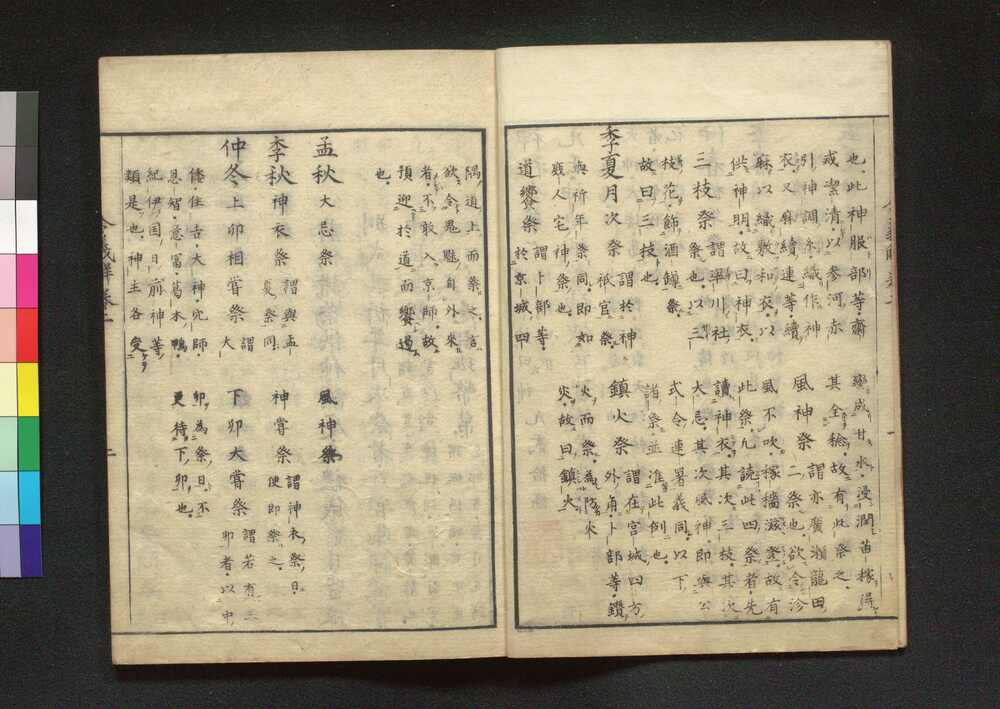 也。此神服部等。齋　變成甘水。浸潤苗稼。得
戒潔清。以參河赤　其全稔。故有此祭之。
引神調糸。織作神　風神祭　謂亦廣瀬龍田
衣。又麻續連等。績　二祭也。欲令沴
麻以織敷和衣。以　風不吹。稼穡滋登。故有
供神明。故曰神衣。　此祭。凡読此四祭者。先
三枝祭　謂率川社　讀神衣。其次三枝。其次
祭也。以三　大忌。其次風神。即與公
枝花飾酒罇。祭。　式令連署義同。以下
故曰三枝也。　諸祭並准此例也。
季夏月次祭　謂於神　鎮火祭　謂在宮城四方
祇官祭。　外角。卜部等。鑽
與祈年祭同。即如　火而祭。為防火
庶人宅神祭也。　災。故曰鎮火。
道饗祭　謂卜部等。
於京城四
隅道上而祭之。言
欲令鬼魅。自外來
者。不敢入京師。故
預迎於道而饗遏
也。
孟秋大忌祭　風神祭
季秋神衣祭　謂與孟
夏祭同　神嘗祭　謂神衣祭日。
便即祭之。
仲冬上卯相嘗祭　謂
大　下卯大嘗祭　謂若有三
卯者。以中
倭。住吉。大神。穴師。　卯為祭日。不
恩智。意富。葛木鴨。　更待下卯也。
紀伊國日前神等。
類是也。神主各受